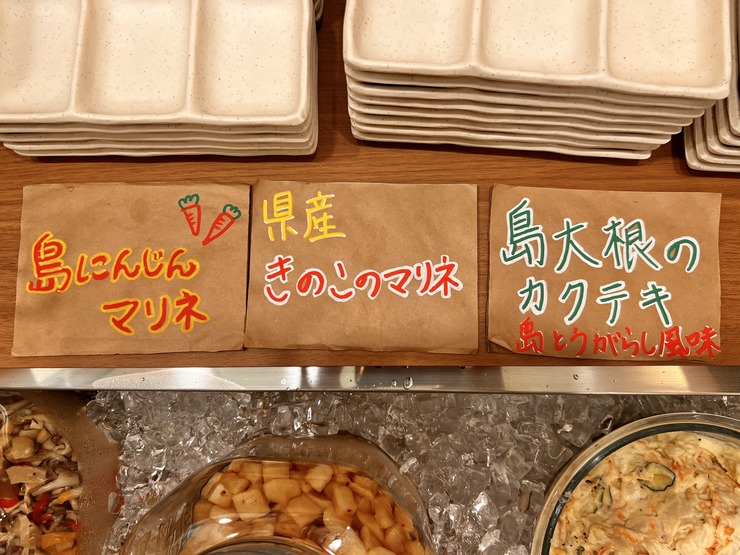 島にんじん
マリネ
県産
きのこのマリネ
島大根の
カクテキ
島とうがらし風味